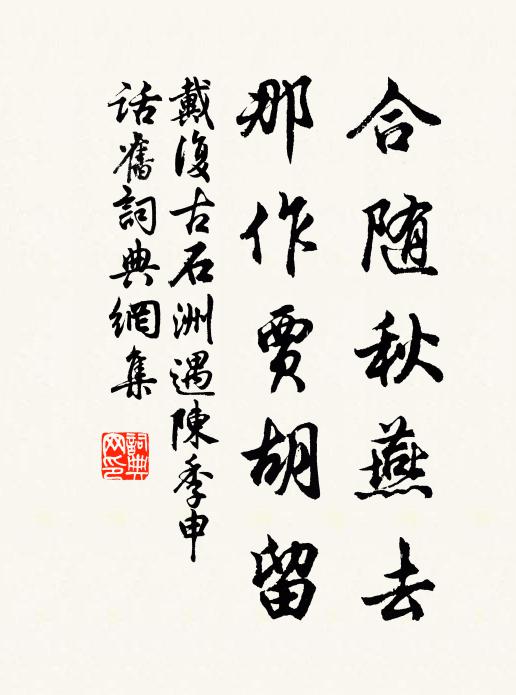 合随秋燕去
那作賈胡留
戴復古石洲遇陳季申
話舊詞典網集
詞典
网印